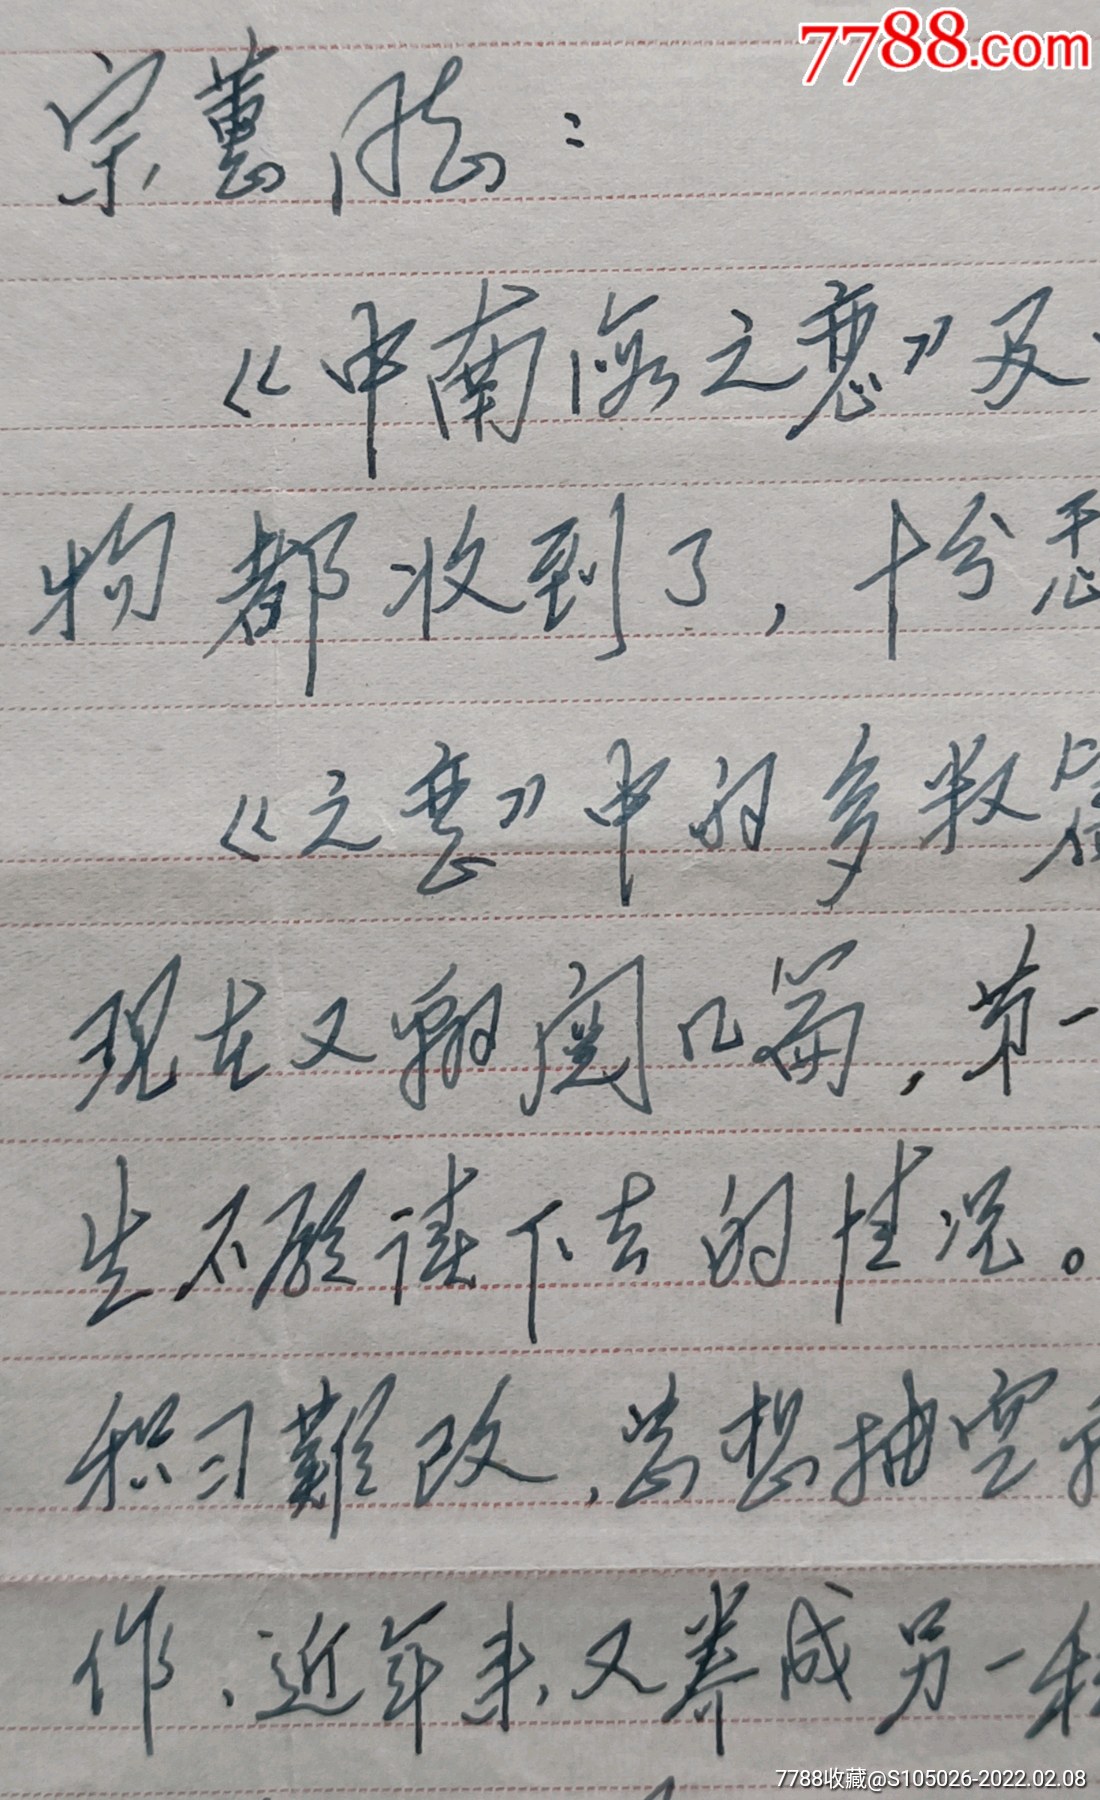 7788.com
宗蕙同志:
《中南海之恋》及
物都收到了,十分
《之恋》中的多数
现在又翻阅几篇,第一
生不愿读下去的情况。
积习难改,总想抽空
作,近年来,又养成另一
7788收藏@S105026-2022.02.08